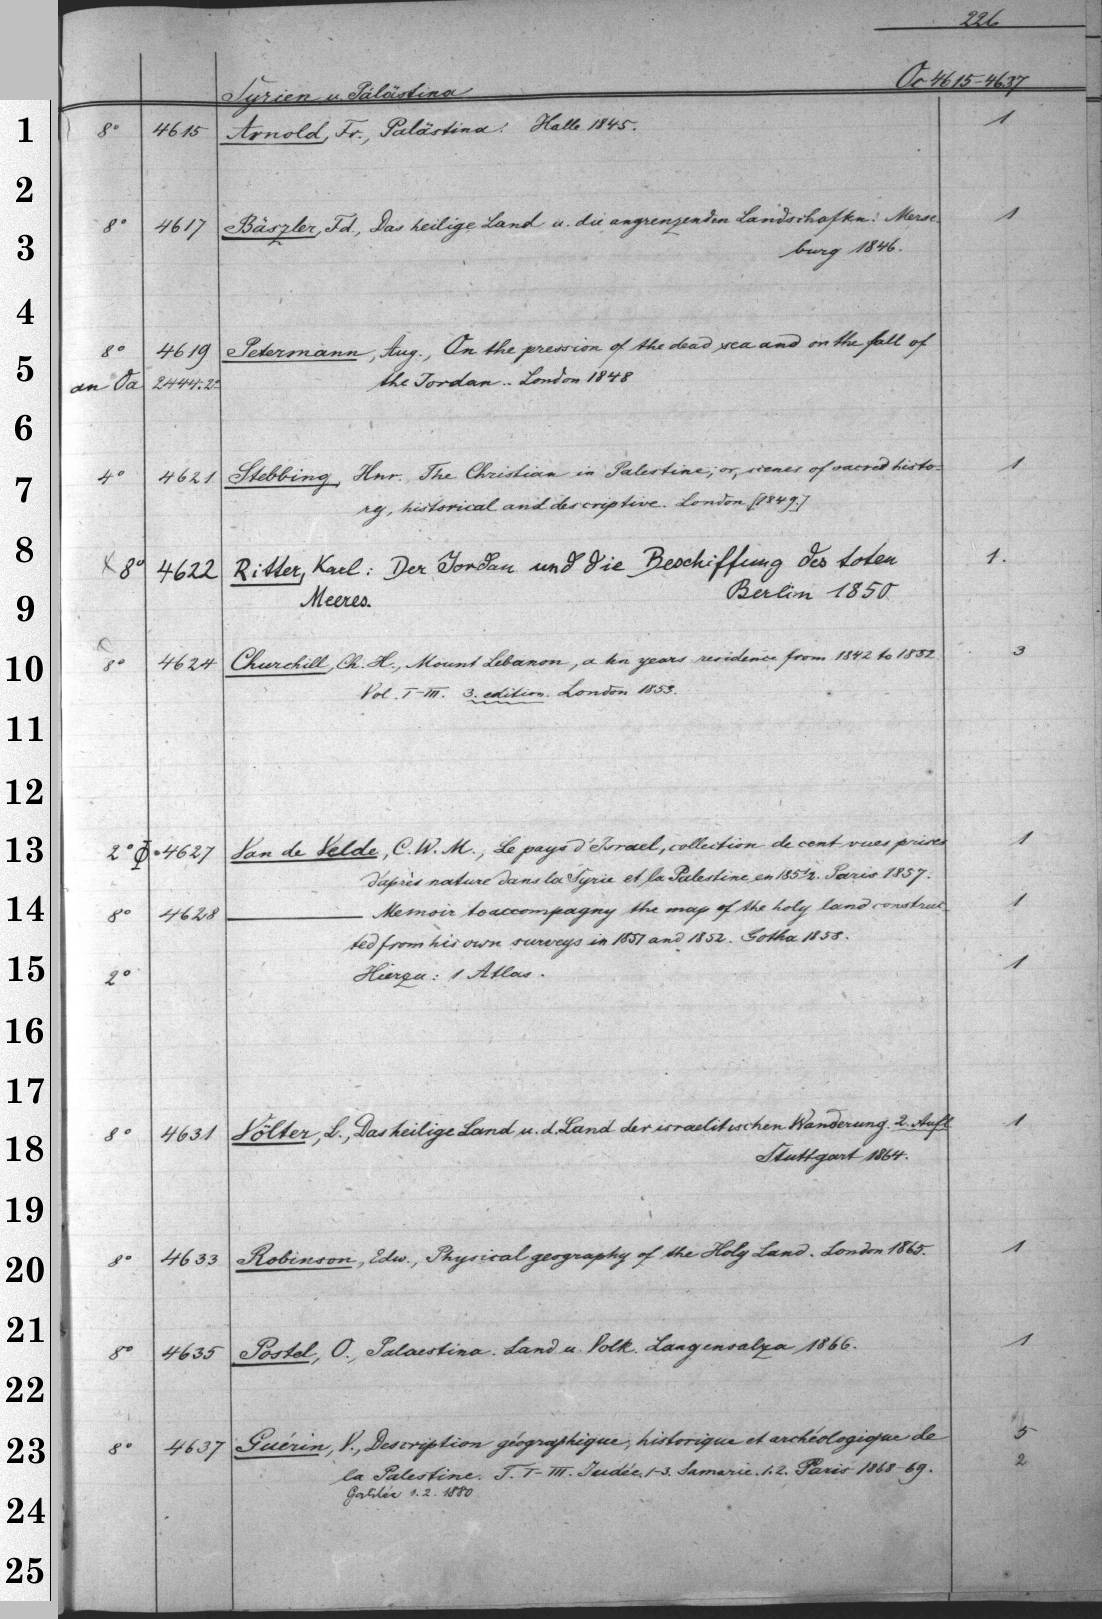 226
Syrien u. Palästina Oc 4615-4637
1 8° 4615 Arnold, Fr., Palästina. Halle 1845. 1
2
8° 4617 Bäszler, Fd., Das heilige Land u. die angrenzenden Landschaften. Merse- 1
3 burg 1846.
4
8° 4619 Petermann, Aug., On the pression of the dead sea and on the fall of
5 an Oa 2444.2° the Jordan.. London 1848
6
4° 4621 Stebbing, Hnr. The Christian in Palestine; or, scenes of sacred histo- 1
7 ry, historical and descriptive. London [1849.]
8 8° 4622 Ritter, Karl: Der Jordan und die Beschiffung des toten 1.
9 Meeres. Berlin 1850
10 8° 4624 Churchill, Ch. H., Mount Lebanon, a ten years residence from 1842 to 1852 3
Vol. I-III. 3. edition. London 1853.
11
12
13 2° Φ 4627 Van de Velde, C. W. M., Le pays d'Israel, collection de cent vues prises 1
d'après nature dans la Syrie et la Palestine en 1851/2. Paris 1857.
14 8° 4628 ——— Memoir to accompagny the map of the holy land construc- 1
ted from his own surveys in 1851 and 1852. Gotha 1858.
15 2° Hierzu: 1 Atlas. 1
16
17
18 8° 4631 Völter, L., Das heilige Land u. d. Land der israelitischen Wanderung. 2. Aufl 1
Stuttgart 1864.
19
20 8° 4633 Robinson, Edw., Physical geography of the Holy Land. London 1865. 1
21 8° 4635 Postel, O., Palaestina. Land u. Volk. Langensalza 1866. 1
22
23 8° 4637 Guérin, V., Description géographique, historique et archéologique de 5
la Palestine. T. I-III. Judée, 1-3. Samarie. 1.2. Paris 1868-69. 2
Galilée 1.2. 1880
24
25